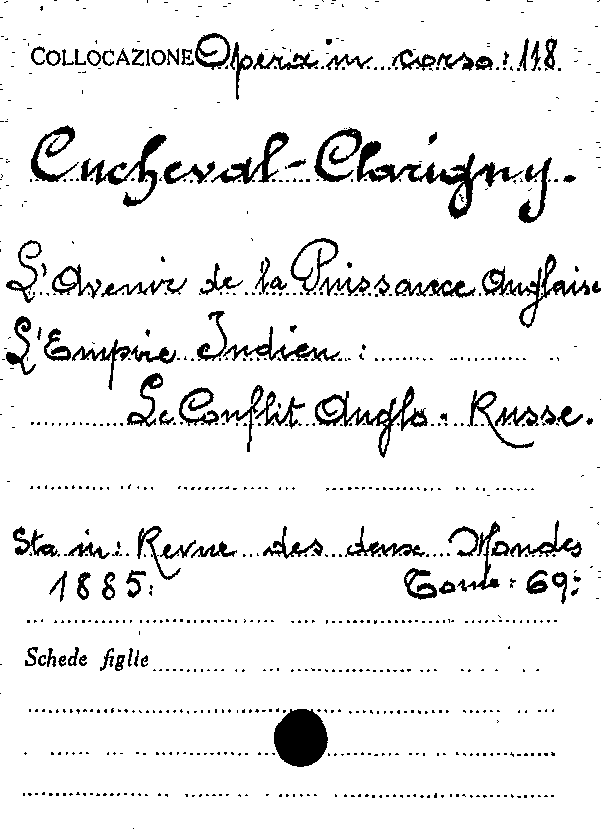 COLLOCAZIONE Opera in corso: 118
Cucheval-Clarigny.
L'Avenir de la Puissance Anglaise
L'Empire Indien :
Le Conflit Anglo-Russe.
Sta in: Revue des deux Mondes
1885: Tome: 69:
Schede figlie